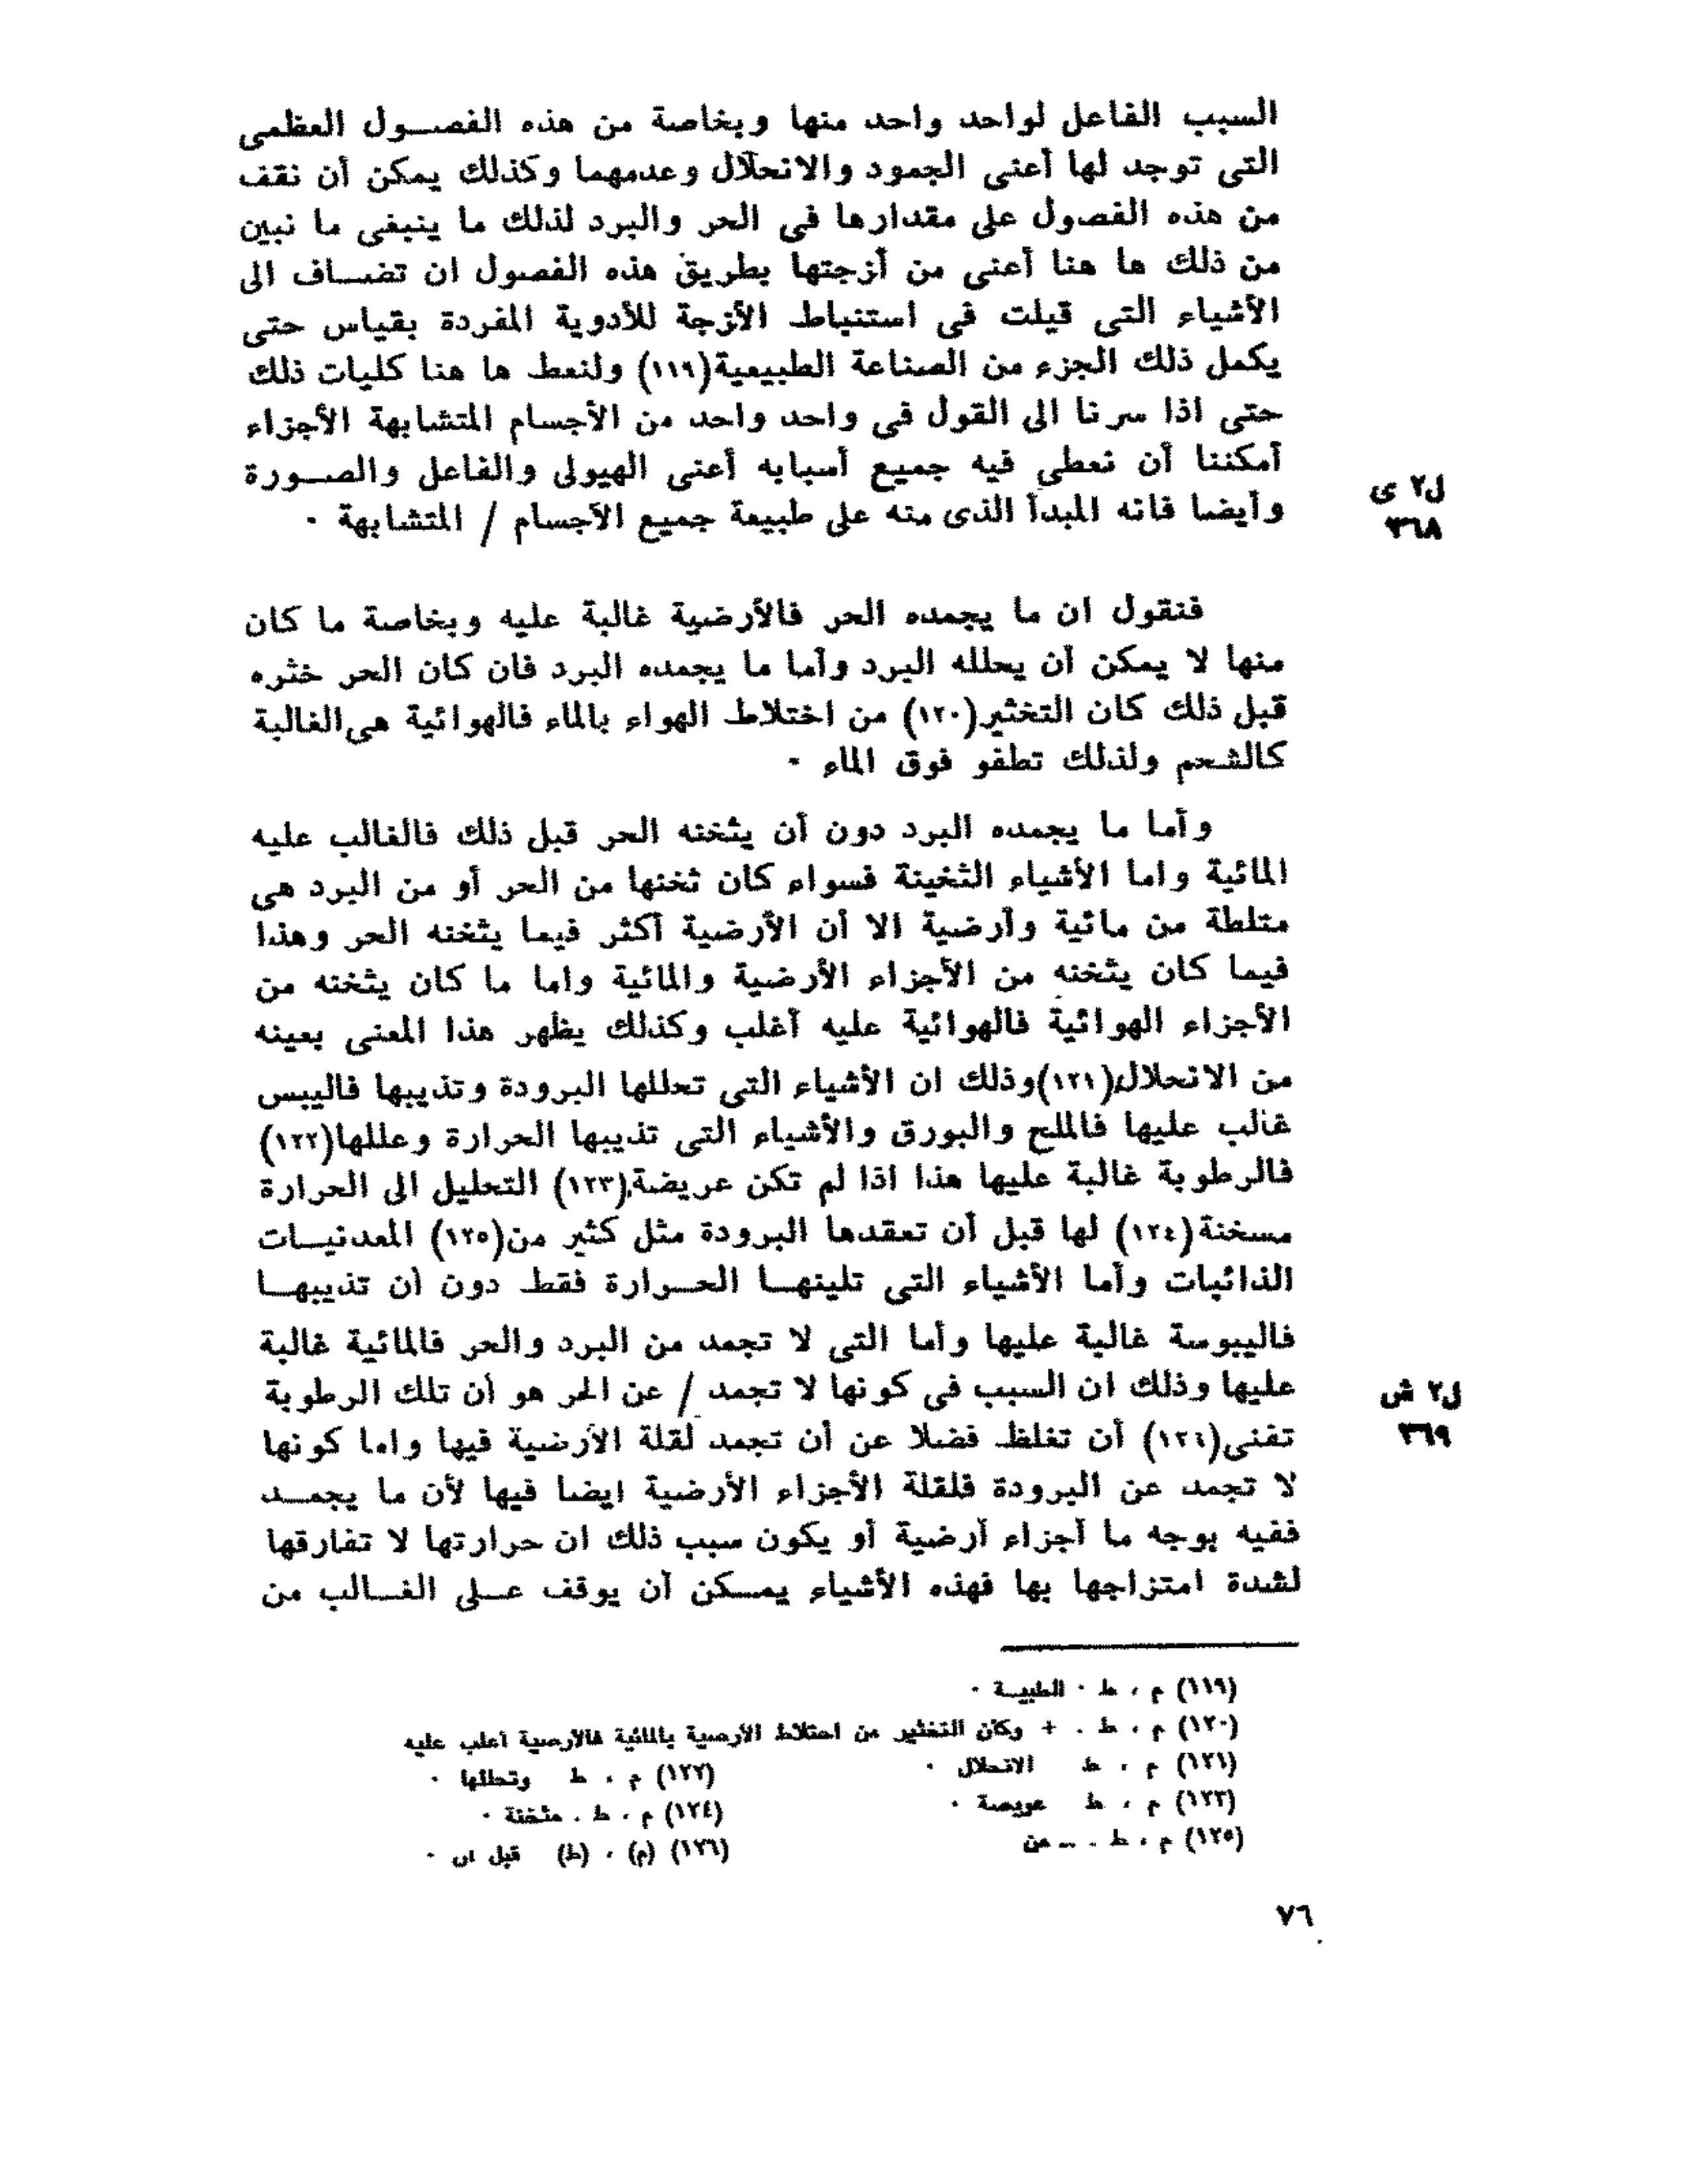 السبب الفاعل لواحد واحد منها وبخاصة من هذه الفصول العظمى
التى توجد لها أعنى الجمود والانحلال وعدمهما وكذلك يمكن أن نقف
من هذه الفصول على مقدارها فى الحر والبرد لذلك ما ينبغى ما نبين
من ذلك ها هنا أعنى من أزجتها بطريق هذه الفصول ان تضاف الى
الأشياء التى قيلت فى استنباط الأزجة للأدوية المفردة بقياس حتى
يكمل ذلك الجزء من الصناعة الطبيعية(١١٩) ولنعط ها هنا كليات ذلك
حتى اذا سرنا الى القول فى واحد واحد من الأجسام المتشابهة الأجزاء
أمكننا أن نعطى فيه جميع أسبابه أعنى الهيولى والفاعل والصورة
ل٢ ى
وأيضا فانه المبدأ الذى منه على طبيعة جميع الأجسام / المتشابهة ٠
٣٦٨
فنقول ان ما يجمده الحر فالأرضية غالبة عليه وبخاصة ما كان
منها لا يمكن أن يحلله البرد وأما ما يجمده البرد فان كان الحر خثره
قبل ذلك كان التخثير(١٢٠) من اختلاط الهواء بالماء فالهوائية هى الغالبة
كالشحم ولذلك تطفو فوق الماء ٠
وأما ما يجمده البرد دون أن يثخنه الحر قبل ذلك فالغالب عليه
المائية واما الأشياء الثخينة فسواء كان ثخنها من الحر أو من البرد هى
متلطة من مائية وأرضية الا أن الأرضية أكثر فيما يثخنه الحر وهذا
فيما كان يثخنه من الأجزاء الأرضية والمائية واما ما كان يثخنه من
الأجزاء الهوائية فالهوائية عليه أغلب وكذلك يظهر هذا المعنى بعينه
من الانحلال(١٢١)وذلك ان الأشياء التى تحللها البرودة وتذيبها فاليبس
غالب عليها فالملح والبورق والأشياء التى تذيبها الحرارة وعللها(١٢٢)
فالرطوبة غالبة عليها هذا اذا لم تكن عريضة(١٢٣) التحليل الى الحرارة
مسخنة(١٢٤) لها قبل أن تعقدها البرودة مثل كثير من(١٢٥) المعدنيات
الذائبات وأما الأشياء التى تلينها الحرارة فقط دون أن تذيبها
فاليبوسة غالبة عليها وأما التى لا تجمد من البرد والحر فالمائية غالبة
عليها وذلك ان السبب فى كونها لا تجمد / عن الحر هو أن تلك الرطوبة
ل٢ ش
تفنى(١٢٦) أن تغلظ فضلا عن أن تجمد لقلة الأرضية فيها واما كونها
٣٦٩
لا تجمد عن البرودة فلقلة الأجزاء الأرضية ايضا فيها لأن ما يجمد
ففيه بوجه ما أجزاء أرضية أو يكون سبب ذلك ان حرارتها لا تفارقها
لشدة امتزاجها بها فهذه الأشياء يمكن أن يوقف على الغالب من
(١١٩) م ، ط ٠ الطبيـة ٠
(١٢٠) م ، ط . + وكان التخثير من احتلاط الأرصية بالمائية فالأرصية أعلب عليه
(١٢١) م ، ط الانحلال ٠
(١٢٢) م ، ط وتحللها ٠
(١٢٣) م ، ط عويصة ٠
(١٢٤) م ، ط . مثخنة ٠
(١٢٥) م ، ط . ــ من
(١٢٦) (م) ، (ط) قبل ان ٠
٧٦